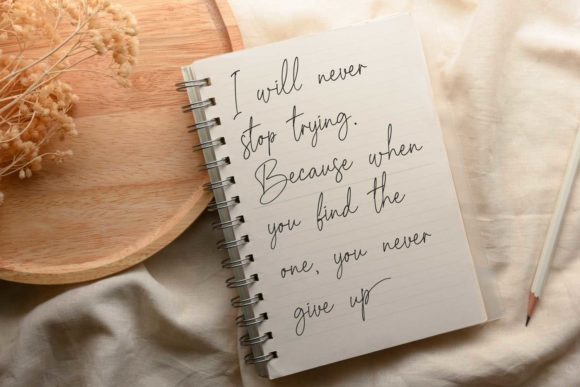 I will never
stop trying.
Because when
you find the
one, you never
give up